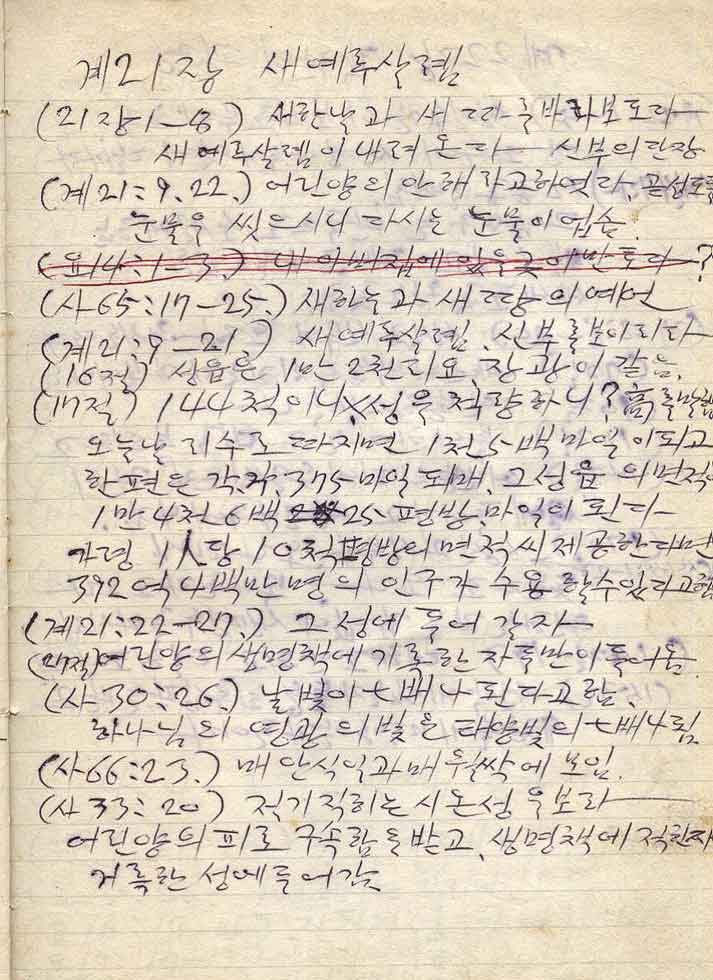 계21장 새예루살렘
(21장1-8) 새한날과 새따를바라보도라
새예루살렘이내려온다 신부의단장
(계21:9.22.) 어린양의안해라고하엿다. 곧성도들
눈물을 씻으시니 다시는 눈물이업슴.
(요14:1-3.) 내아버집에 있을곳이만토다?
(사65:17-25.) 새하늘과 새땅의예언
(계21:9-21) 새예루살렘. 신부를보이리라
(16절) 성읍은 1만2천리요. 장광이 갈늠.
(17절) 144척이니 성을 척량하니? 高를말함
오늘날 리수로 따지면 1천5백마일이되고
한편은 각.각.375마일되매. 그성읍의면적이
1만4천6백25평방.마일이 된다
가령 1人당 10척평방의 면적씨제공한다면
392억4백만명의 인구가 수용할수있다고함
(계21:22-27.) 그성에 들어갈자
(27절)어린양의생명책에기록한자들만이들어옴
(사30:26.) 날빛이七배나된다고함.
하나님의 영광의빛은 태양빛의七배나됨
(사66:23.) 매안식일과매월삭에 모임.
(사33:20) 절기직히는시온성을보라
어린양의피로구속함을받고、생명책에적힌자
거룩한성에들어감